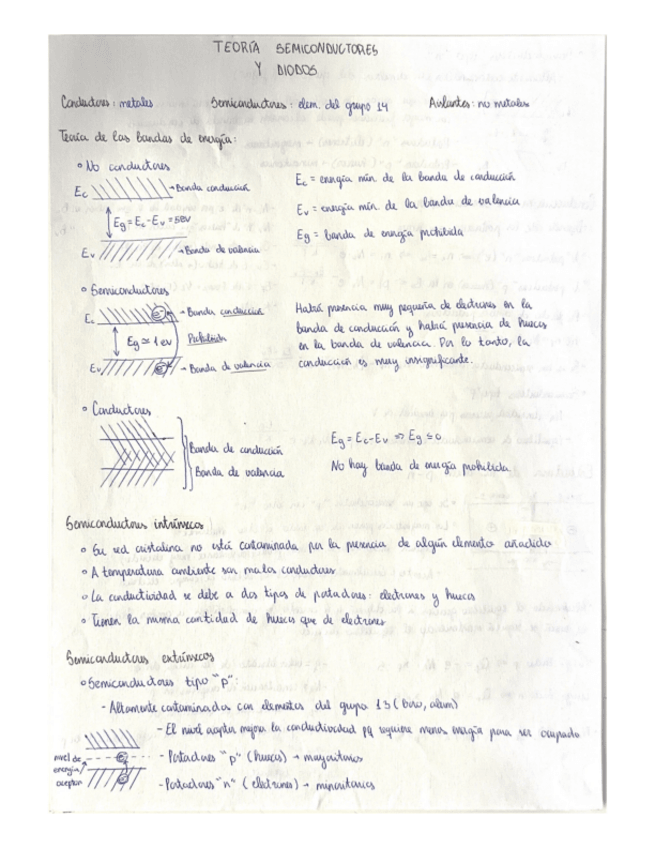 TEORÍA SEMICONDUCTORES
Y DIODOS
Conductores: metales Semiconductores: elem. del grupo 14 Aislantes: no metales
Teoría de las bandas de energía:
◦ No conductores
Ec → Banda conducción
Eg = Ec - Ev = 5eV
Ev → Banda de valencia
Ec = energía mín. de la banda de conducción
Ev = energía mín. de la banda de valencia
Eg = banda de energía prohibida
◦ Semiconductores
Ec e- → Banda conducción
Eg ≃ 1 eV Prohibida
Ev → Banda de valencia
Habrá presencia muy pequeña de electrones en la
banda de conducción y habrá presencia de huecos
en la banda de valencia. Por lo tanto, la
conducción es muy insignificante.
◦ Conductores
Banda de conducción
Banda de valencia
Eg = Ec - Ev ⇒ Eg ≤ 0
No hay banda de energía prohibida
Semiconductores intrínsecos
◦ Su red cristalina no está contaminada por la presencia de algún elemento añadido
◦ A temperatura ambiente son malos conductores
◦ La conductividad se debe a dos tipos de portadores: electrones y huecos
◦ Tienen la misma cantidad de huecos que de electrones
Semiconductores extrínsecos
◦ Semiconductores tipo "p":
- Altamente contaminados con elementos del grupo 13 (boro, alum)
- El nivel aceptor mejora la conductividad pq requiere menos energía para ser ocupada
nivel de
energía
aceptor
- Portadores "p" (huecos) → mayoritarios
- Portadores "n" (electrones) → minoritarios